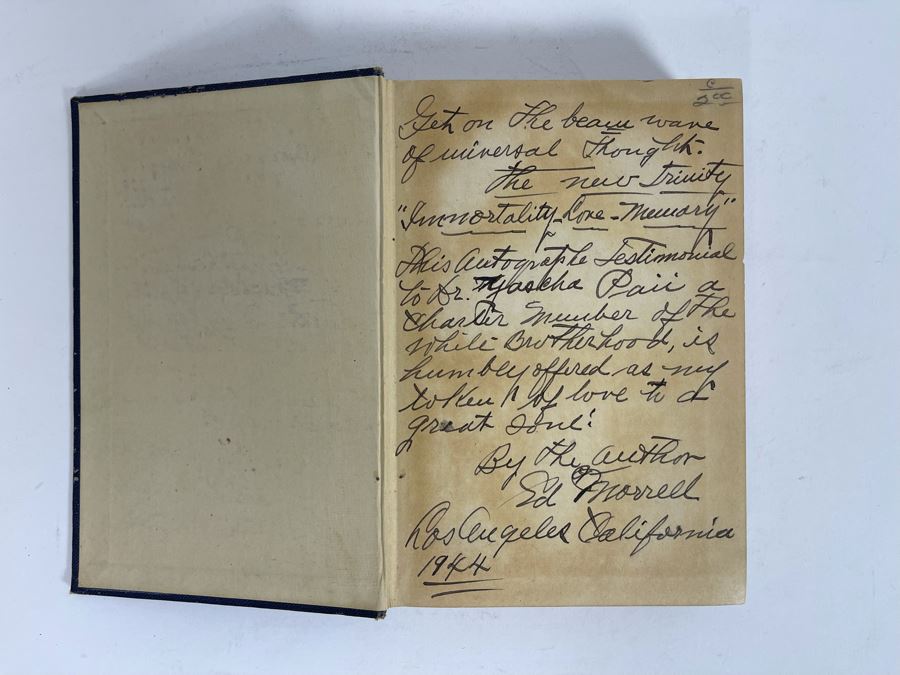 Get on The beam wave
of universal Thought.
The new Trinity
"Immortality - Love - Memory"
This Autographe Testimonial
to Dr. Mascha Paii a
Charter Member of The
White Brotherhood, is
humbly offered as my
token of love to a
great soul!
By The Author
Ed Morrell
Los Angeles California
1944